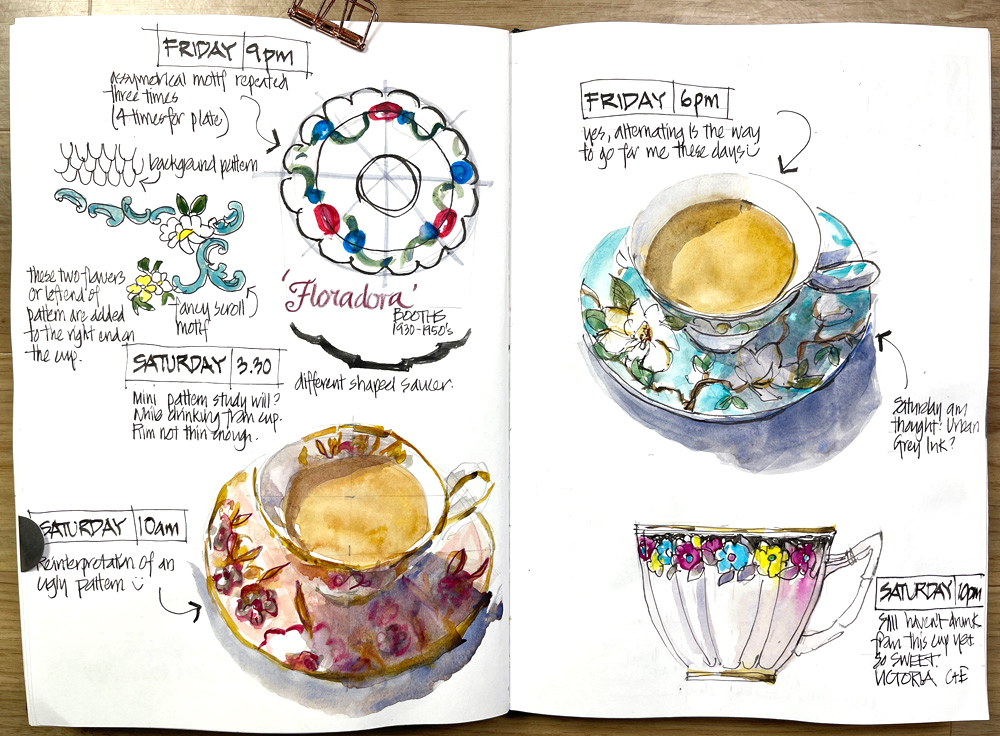 FRIDAY 9pm
assymetrical motif repeated
three times
(4 times for plate)
background pattern
these two flowers
or left end of
pattern are added
to the right end on
the cup.
fancy scroll
motif
'Floradora'
BOOTHS
1930-1950's
different shaped saucer.
SATURDAY 3.30
Mini pattern study
while drinking from cup.
Rim not thin enough.
SATURDAY 10am
Reinterpretation of an
ugly pattern
FRIDAY 6pm
yes, alternating is the way
to go for me these days
Saturday am
thought: Urban
Grey Ink?
SATURDAY 10pm
Still haven't drunk
from this cup yet
SO SWEET.
VICTORIA C&E